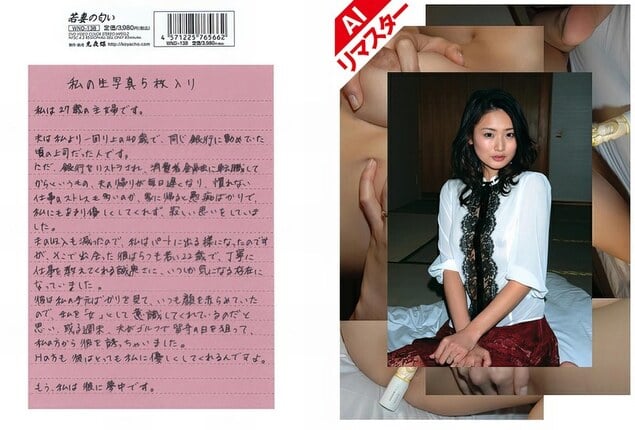 若妻の匂い
WND-138 定価/3,980円(税込)
http://koyacho.com
WND-138 定価/3,980円(税込)
4 571225 765662
AI
リマスター
私の生写真5枚入り
私は27歳の主婦です。
夫は私より一回り上の40歳で、同じ銀行に勤めていた
頃の上司だった人です。
ただ、銀行をリストラされ、消費者金融に転職して
からというもの、夫の帰りが毎日遅くなり、慣れない
仕事のストレスも多いのか、家に帰ると愚痴ばかりで、
私にもあまり優しくしてくれず、寂しい思いをしていま
した。
夫の収入も減ったので、私はパートに出る様になったのです
が、そこで出会った彼は5つも若い22歳で、丁寧に
仕事を教えてくれる誠実さに、いつしか気になる存在に
なっていました。
彼は私の手元ばかりを見て、いつも顔を赤らめていた
ので、私を「女」として意識してくれているのだと
思い、或る週末、夫がゴルフで留守の日を狙って、
私の方から彼を誘っちゃいました。
Hの方も彼はとっても私に優しくしてくれるんですよ。
もう、私は彼に夢中です。